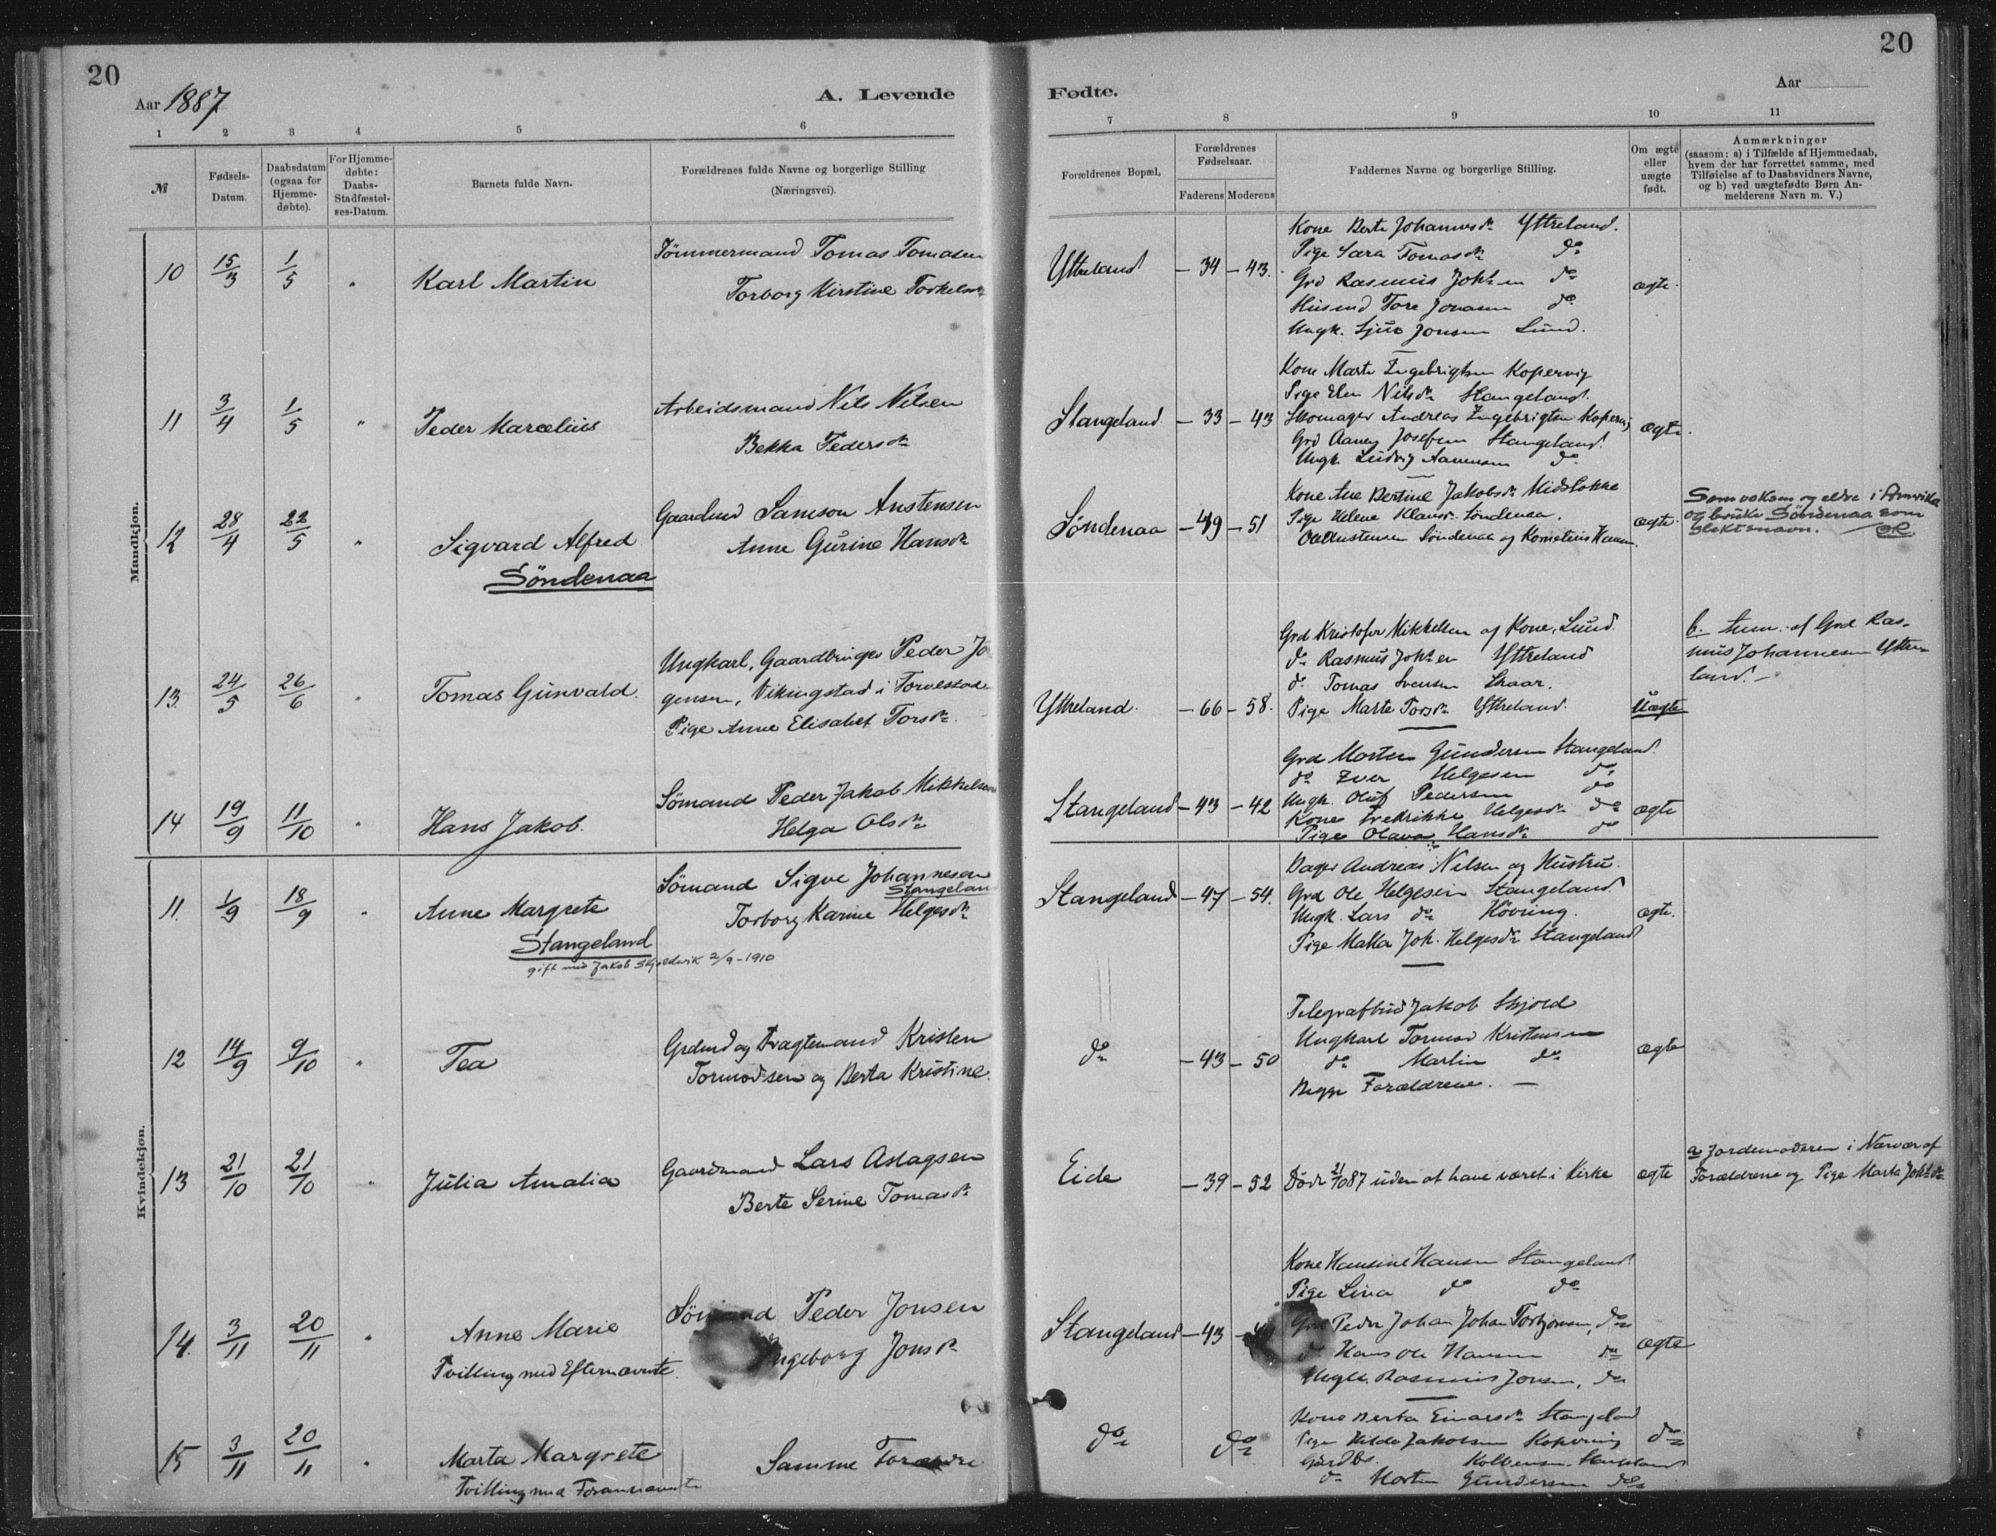 20
Aar 1887
A. Levende
1 2 3 4 5 6
№
Fødsels-
Datum.
Daabsdatum
(ogsaa for
Hjemme-
døbte).
For Hjemme-
døbte:
Daabs-
Stadfæstel-
ses-Datum.
Barnets fulde Navn.
Forældrenes fulde Navne og borgerlige Stilling
(Næringsvei).
Mandkjøn.
10 15/3 1/5 " Karl Martin
Tømmermand Tomas Tomasen
Torborg Kirstine Torkelsdr
11 3/4 1/5 " Peder Marcelius
Arbeidsmand Nils Nilsen
Bekka Pedersdr
12 28/4 22/5 " Sigvard Alfred
Söndenaa
Gaardmd Samson Anstensen
Anne Gurine Hansdr
13. 24/5 26/6 " Tomas Gunvald.
Ungkarl, Gaardbruger Peder Jo
gensen, Vikingstad i Torvestad
Pige Anne Elisabet Torsdr.
14 19/9 11/10 " Hans Jakob.
Sømand Peder Jakob Mikkelsen
Helga Olsdr
Kvindekjøn.
11. 1/9 18/9 " Anne Margrete
Stangeland
gift med Jakob Skjoldevik 2/9-1910
Sømand Sigve Johannesen
Stangeland
Torborg Karine Helgesdr
12 14/9 9/10 " Tea
Grdmd og Fragtemand Kristen
Tormodsen og Berta Kristine.
13 21/10 21/10 " Julia Amalia
Gaardmand Lars Aslagsen
Berte Serine Tomasdr
14. 3/11 20/11 " Anne Marie
Tvilling med Efternævnte.
Sømand Peder Jonsen
Ingeborg Jonsdr
15 3/11 20/11 " Marta Margrete
Tvilling med Forannævnte
Samme Forældre
20
Fødte.
Aar
7 8 9 10 11
Forældrenes Bopæl.
Forældrenes
Fødselsaar.
Faderens Moderens
Faddernes Navne og borgerlige Stilling.
Om ægte
eller
uægte
født.
Anmærkninger
(saasom: a) i Tilfælde af Hjemmedaab,
hvem der har forrettet samme, med
Tilføielse af to Daabsvidners Navne,
og b) ved uægtefødte Børn An-
melderens Navn m. V.)
Ytreland - 34 - 43.
Kone Berta Johannesdr Ytreland.
Pige Sara Tomasdr do
Grd Rasmus Johsen do
Husmd Tore Jonasen do
Ungk. Sjur Jonsen Lund.
ægte.
Stangeland. - 33 - 43
Kone Marta Engebrigtsen Kopervig
Pige Elen Nilsdr Stangeland.
Skomager Andreas Engebrigtsen Kopervig
Grd Josefsen Stangeland.
Ungk. Ludvig do
ægte.
Søndenaa - 49 - 51
Kone Ane Bertine Jakobsdr Midstokke
Pige Helene Klausdr Søndenaa.
Ole Anstensen Søndenaa og Kornelius Hansen.
ægte.
Som voksen og eldre i Amerika
og bruke Söndenaa som
slektsnavn.
Ytreland. - 66 - 58.
Grd Kristofer Mikkelsen og Kone, Lund
do Rasmus Johsen Ytreland
do Tomas Svensen Skaar.
Pige Marte Torsdr Ytreland.
Uægte
b. Anm. af Grd Ras-
mus Johannesen Ytre-
land.
Stangeland - 43 - 42
Grd Morten Gundersen Stangeland.
do Iver Helgesen do
Ungk. Oluf Pedersen do
Kone Fredrikke Helgesdr do
Pige Olava Hansdr do
ægte
Stangeland - 47 - 54.
Andreas Nilsen og Hustru.
Grd Ole Helgesen Stangeland
Ungk. Lars do Høvring.
Pige Malla Joh. Helgesdr Stangeland
ægte.
do - 43 - 50
Telegrafbud Jakob Skjold
Ungkarl Tormod Kristensen
do Martin do
Begge Forældrene.
ægte
Eide - 39 - 52
Døde 21/10 87 uden at have været i Kirke
ægte
a Jordemoderen i Nærvær af
Forældrene og Pige Marta Johsdr
Stangeland - 43 -
Kone Hansine Hansen Stangeland.
Pige Lina do do
Grd Peder Johan Johan Torbjørnsen, do
do Hans Ole Hansen do
Ungk. Rasmus Jonsen, do
ægte
do do
Kone Berta Einarsdr Stangeland
Pige Hilda Jakobsen Kopervig
Gårdbr. Kolbensen Stangeland
do Morten Gundersen do
do